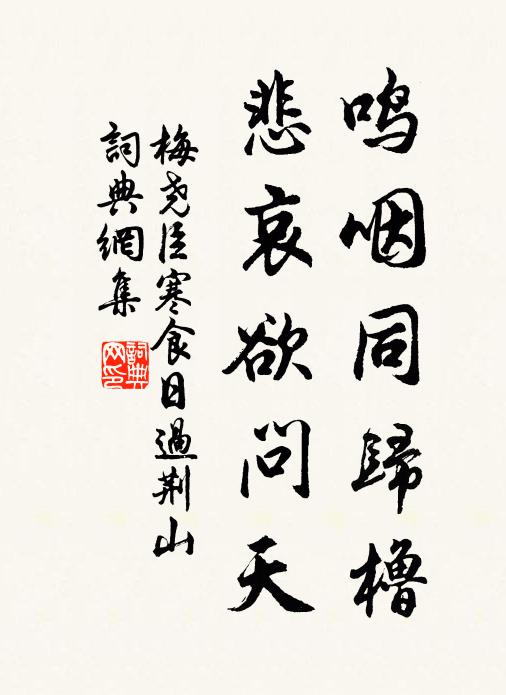 鸣咽同歸櫓
悲哀欲問天
梅尧臣寒食日過荆山
詞典網集
詞典网印